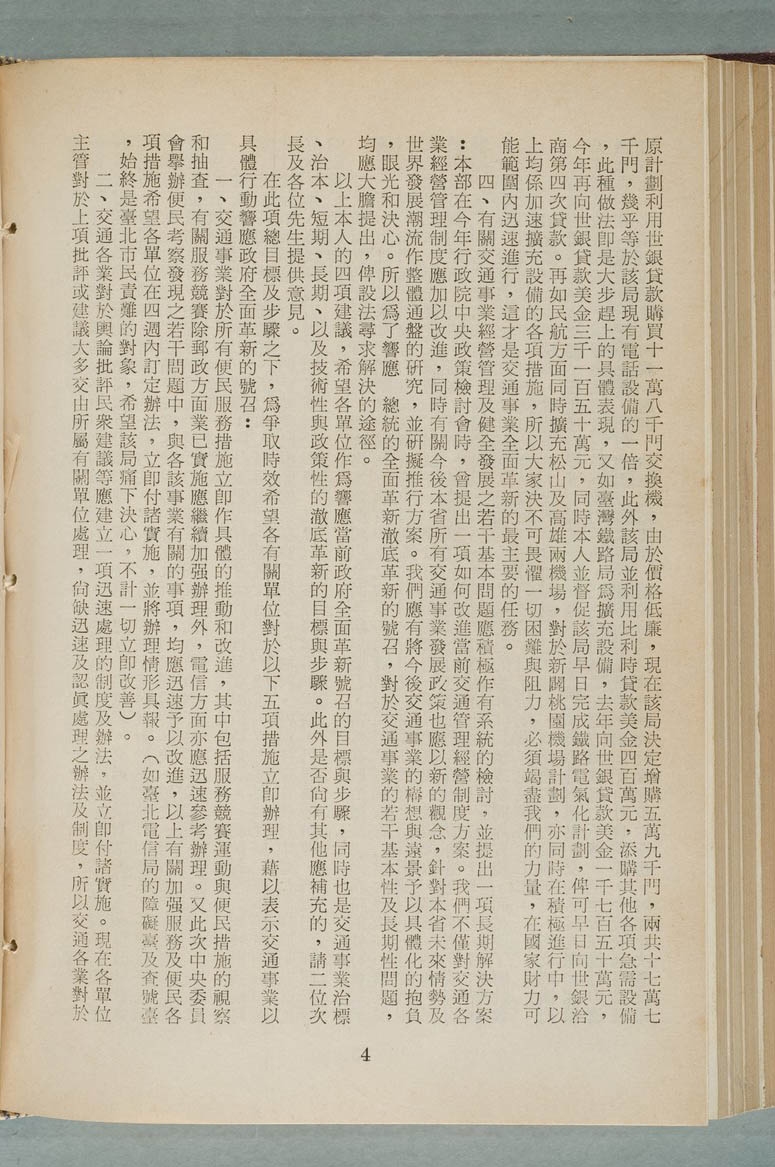 原計劃利用世銀貸款購買十一萬八千門交換機，由於價格低廉，現在該局決定增購五萬九千門，兩共十七萬七
千門，幾乎等於該局現有電話設備的一倍，此外該局並利用比利時貸款美金四百萬元，添購其他各項急需設備
，此種做法卽是大步趕上的具體表現，又如臺灣鐵路局爲擴充設備，去年向世銀貸款美金一千七百五十萬元，
今年再向世銀貸款美金三千一百五十萬元，同時本人並督促該局早日完成鐵路電氣化計劃，俾可早日向世銀洽
商第四次貸款。再如民航方面同時擴充松山及高雄兩機場，對於新闢桃園機場計劃，亦同時在積極進行中，以
上均係加速擴充設備的各項措施，所以大家決不可畏懼一切困難與阻力，必須竭盡我們的力量，在國家財力可
能範圍內迅速進行，這才是交通事業全面革新的最主要的任務。
四、有關交通事業經營管理及健全發展之若干基本問題應積極作有系統的檢討，並提出一項長期解決方案
：本部在今年行政院中央政策檢討會時，曾提出一項如何改進當前交通管理經營制度方案。我們不僅對交通各
業經營管理制度應加以改進，同時有關今後本省所有交通事業發展政策也應以新的觀念，針對本省未來情勢及
世界發展潮流作整體通盤的研究，並研擬推行方案。我們應有將今後交通事業的構想與遠景予以具體化的抱負
，眼光和決心。所以爲了響應　總統的全面革新澈底革新的號召，對於交通事業的若干基本性及長期性問題，
均應大膽提出，俾設法尋求解決的途徑。
以上本人的四項建議，希望各單位作爲響應當前政府全面革新號召的目標與步驟，同時也是交通事業治標
、治本、短期、長期、以及技術性與政策性的澈底革新的目標與步驟。此外是否尙有其他應補充的，請二位次
長及各位先生提供意見。
在此項總目標及步驟之下，爲爭取時效希望各有關單位對於以下五項措施立卽辦理，藉以表示交通事業以
具體行動響應政府全面革新的號召：
一、交通事業對於所有便民服務措施立卽作具體的推動和改進，其中包括服務競賽運動與便民措施的視察
和抽査，有關服務競賽除郵政方面業已實施應繼續加强辦理外，電信方面亦應迅速參考辦理。又此次中央委員
會舉辦便民考察發現之若干問題中，與各該事業有關的事項，均應迅速予以改進，以上有關加强服務及便民各
項措施希望各單位在四週內訂定辦法，立卽付諸實施，並將辦理情形具報。（如臺北電信局的障礙臺及查號臺
，始終是臺北市民責難的對象，希望該局痛下決心，不計一切立卽改善）。
二、交通各業對於輿論批評民衆建議等應建立一項迅速處理的制度及辦法，並立卽付諸實施。現在各單位
主管對於上項批評或建議大多交由所屬有關單位處理，尙缺迅速及認眞處理之辦法及制度，所以交通各業對於
4